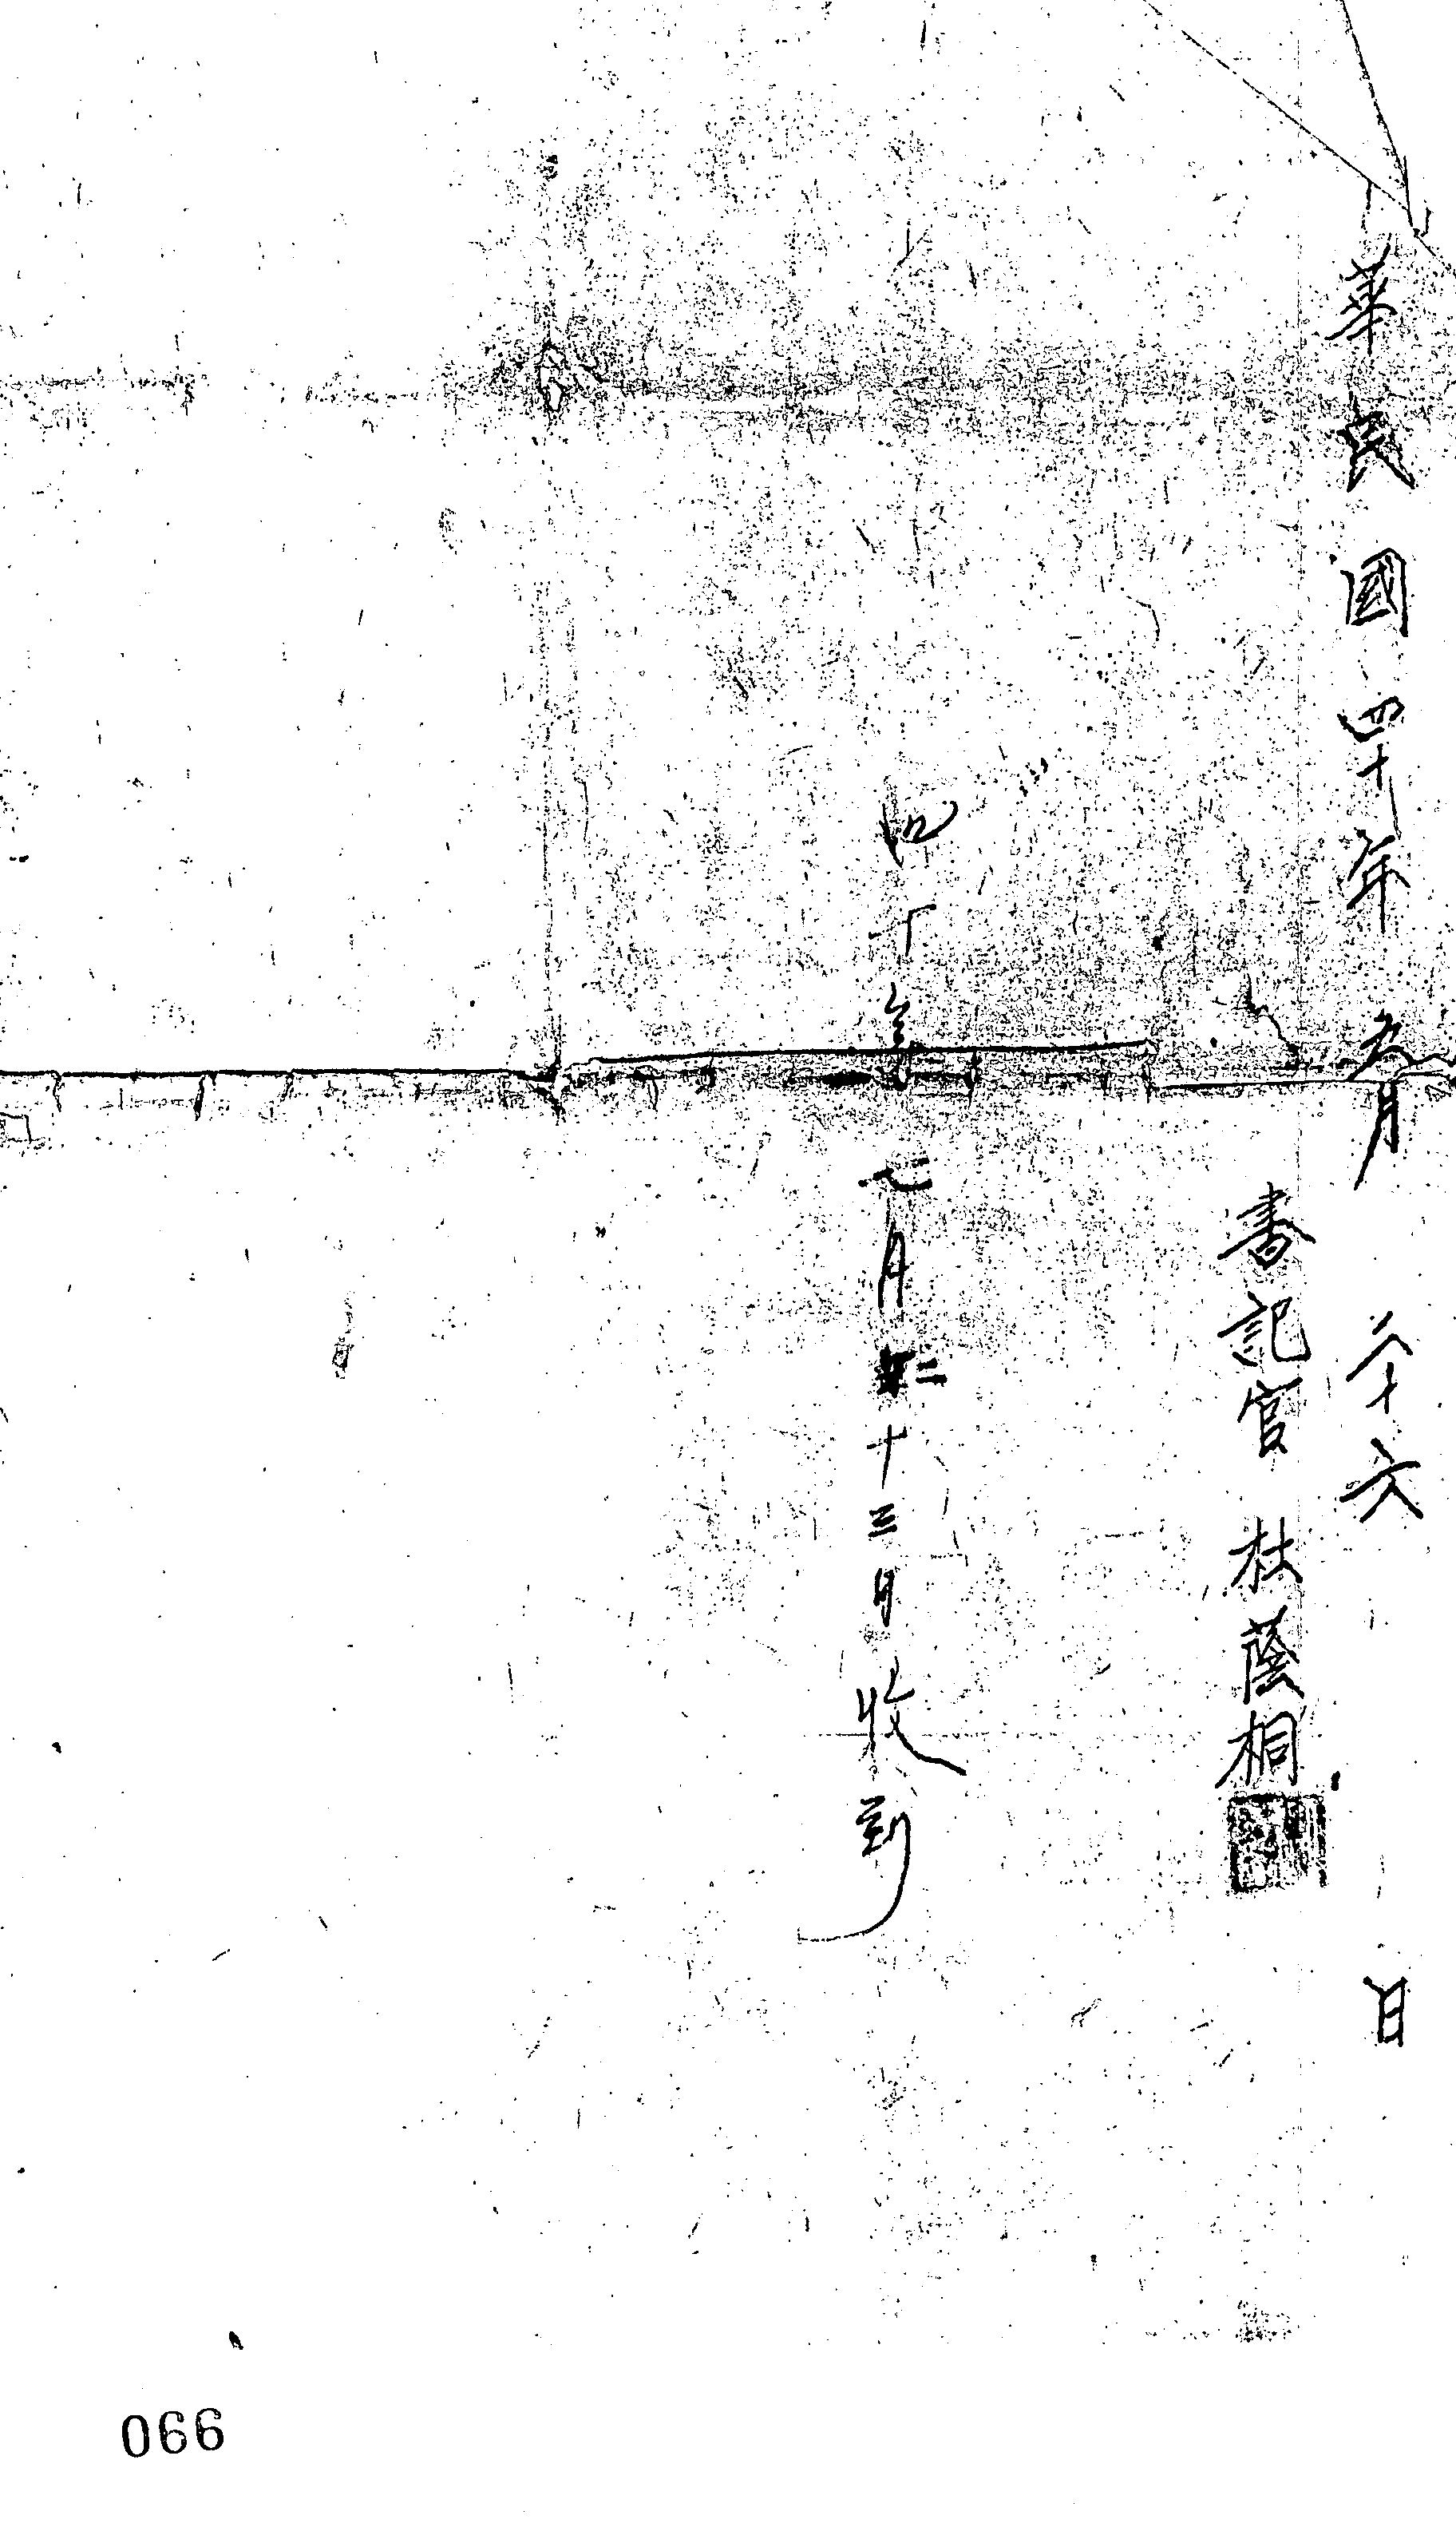 華民國四十年五月二十六日
書記官 杜蔭桐
四十年七月二十三日收到
066